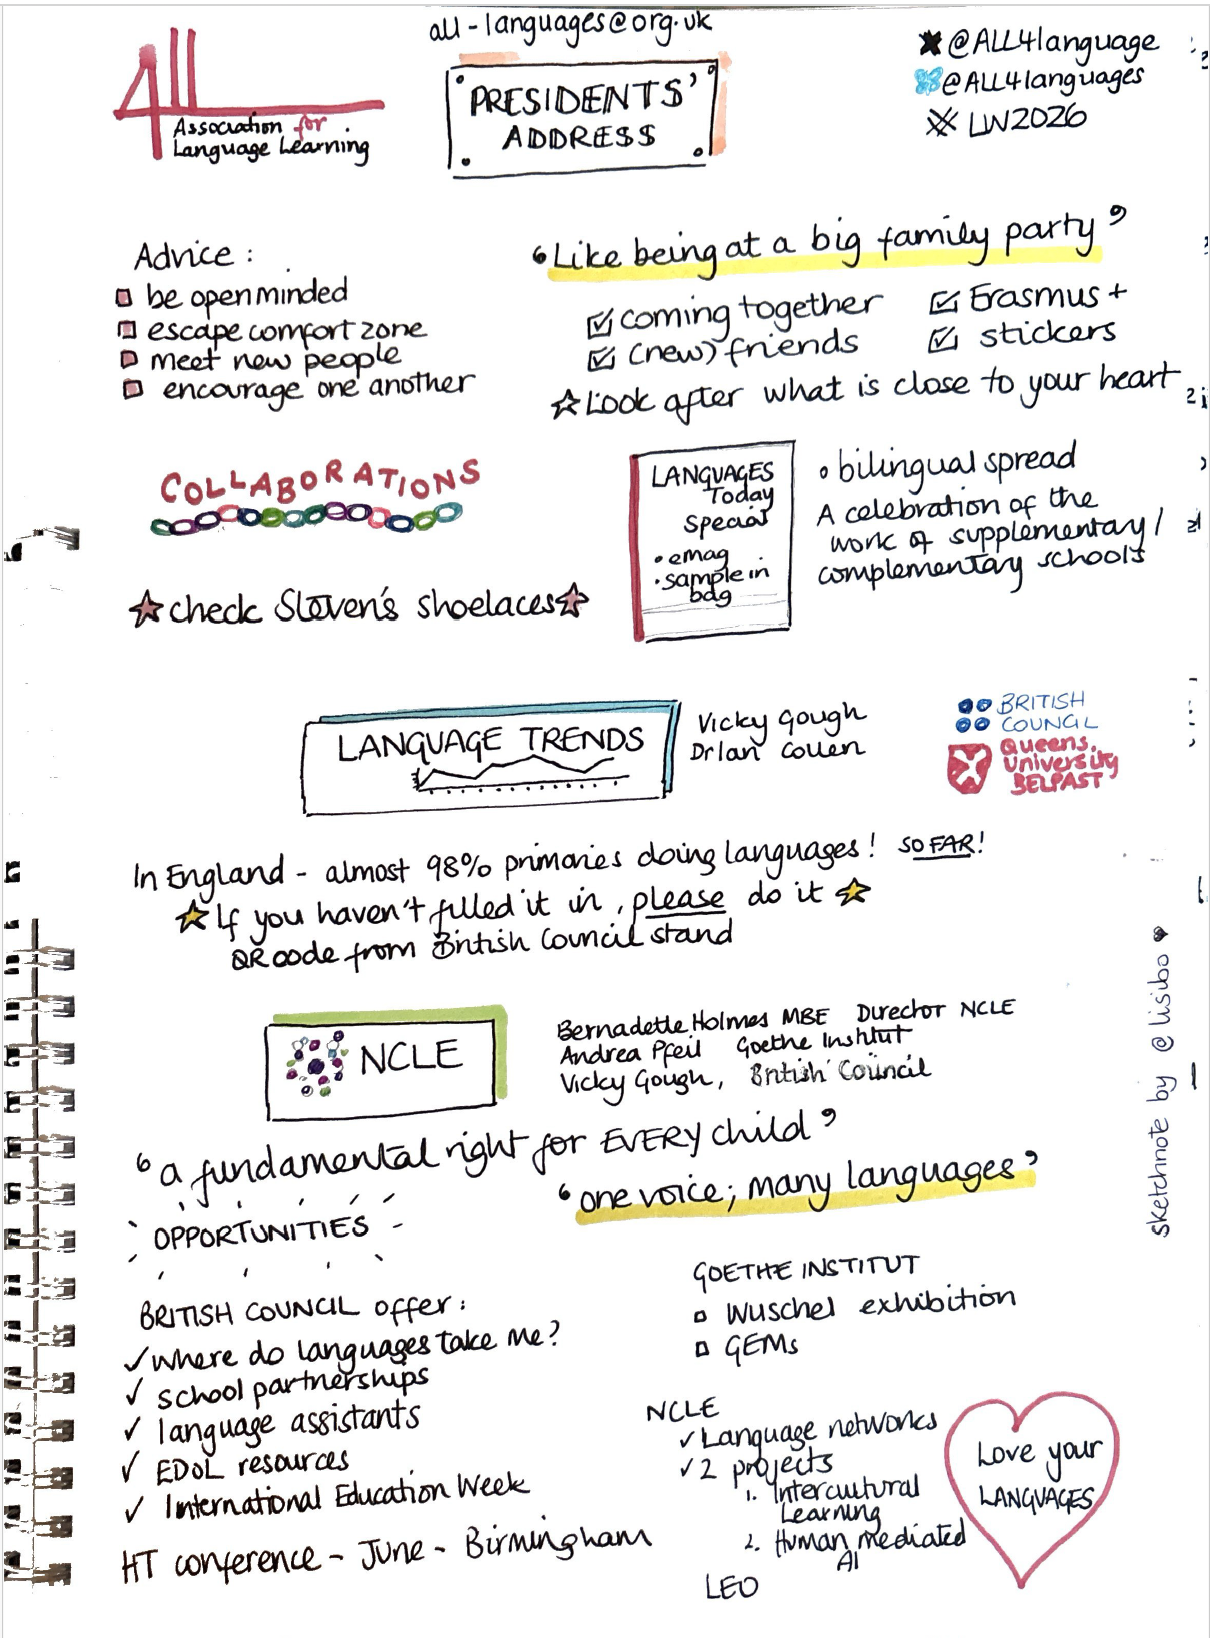 all-languages@org.uk
All
Association for
Language Learning
PRESIDENTS'
ADDRESS
@ALL4language
@ALL4languages
LW2026
Advice :
be openminded
escape comfort zone
meet new people
encourage one another
'Like being at a big family party'
coming together
(new) friends
Erasmus +
stickers
Look after what is close to your heart
COLLABORATIONS
check Steven's shoelaces
LANGUAGES
Today
special
• emag
• sample in
bag
• bilingual spread
A celebration of the
work of supplementary /
complementary schools
LANGUAGE TRENDS
Vicky Gough
Dr Ian Collen
BRITISH
COUNCIL
Queens,
University
BELFAST
In England - almost 98% primaries doing languages! SO FAR!
If you haven't filled it in, please do it
QR code from British Council stand
NCLE
Bernadette Holmes MBE Director NCLE
Andrea Pfeil Goethe Institut
Vicky Gough, British Council
'a fundamental right for EVERY child'
'one voice; many languages'
OPPORTUNITIES
BRITISH COUNCIL offer:
✓ where do languages take me?
✓ school partnerships
✓ language assistants
✓ EDoL resources
✓ International Education Week
HT conference - June - Birmingham
GOETHE INSTITUT
Wuschel exhibition
GEMs
NCLE
✓ Language networks
✓ 2 projects
1. Intercultural
Learning
2. Human mediated
AI
LEO
Love your
LANGUAGES
sketchnote by @lisibo